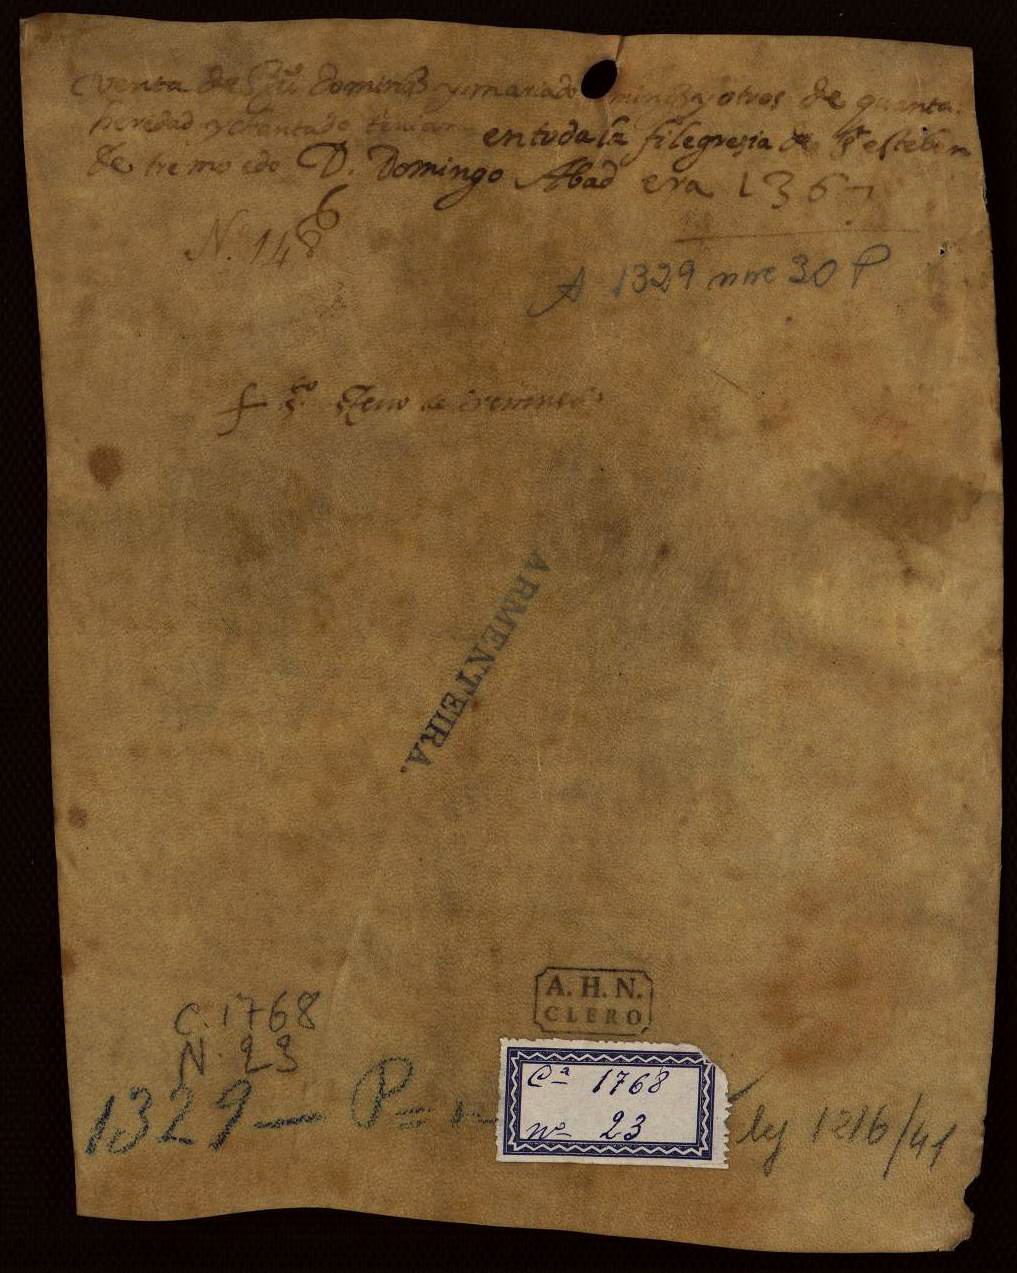 venta de Domings y maria do mings y otros de quanta
heredad y chantado tenian en toda la filegresia de Sn esteban
de tremoedo D. Domingo Abad era 1367
N.º 1486
A 1329 nre 30 P
sco de tremoedo
ARMENTEIRA.
A. H. N.
CLERO
C. 1768
N. 23
1329 — P =
Cª 1768
nº 23
leg 1216/41